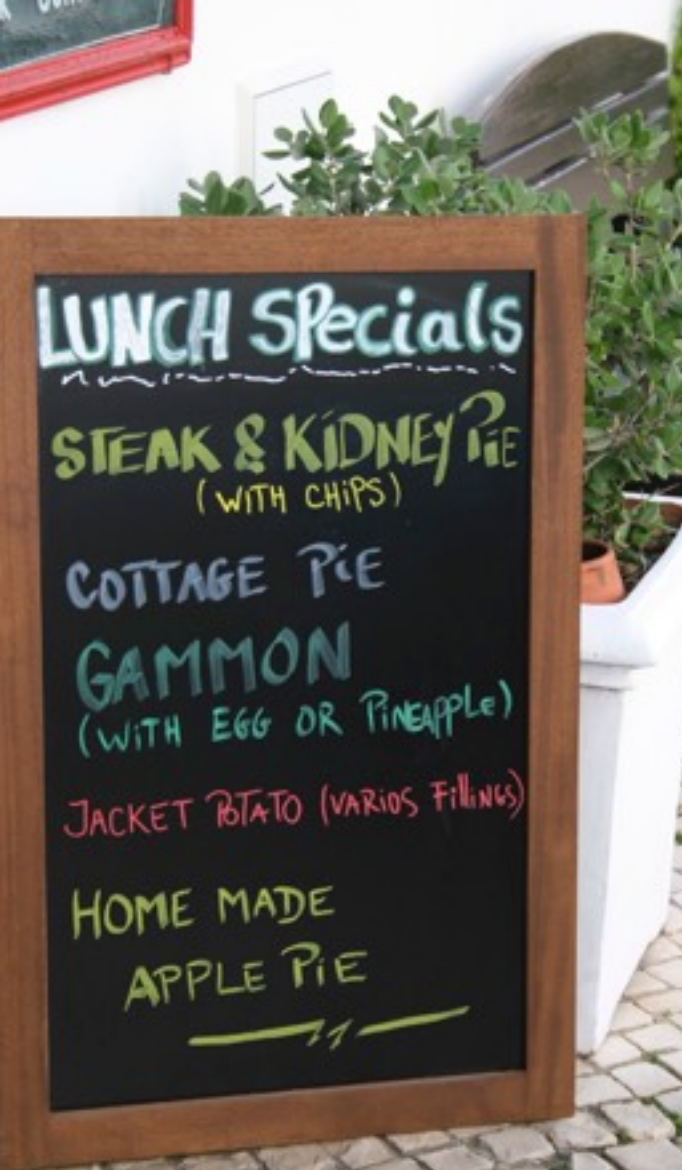 LUNCH SPecials
STEAK & KiDNEY PiE
(WITH CHiPS)
COTTAGE PiE
GAMMON
(WiTH EGG OR PiNEAPPLe)
JACKET POTATO (VARiOS FilliNGS)
HOME MADE
APPLE PiE